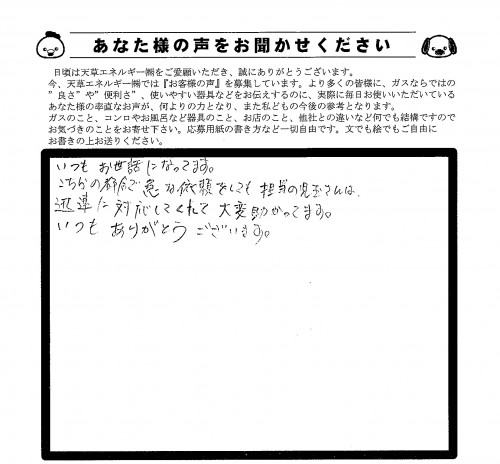 あなた様の声をお聞かせください
日頃は天草エネルギー㈱をご愛顧いただき、誠にありがとうございます。
今、天草エネルギー㈱では『お客様の声』を募集しています。より多くの皆様に、ガスならではの
”良さ”や”便利さ”、使いやすい器具などをお伝えするのに、実際に毎日お使いいただいている
あなた様の率直なお声が、何よりの力となり、また私どもの今後の参考となります。
ガスのこと、コンロやお風呂など器具のこと、お店のこと、他社との違いなど何でも結構ですので
お気づきのことをお寄せ下さい。応募用紙の書き方など一切自由です。文でも絵でもご自由に
お書きの上お送りください。
いつも お世話になってます。
こちらの都合で急な依頼をしても 担当の児玉さんは、
迅速に対応してくれて大変助かってます。
いつも ありがとう ございます。